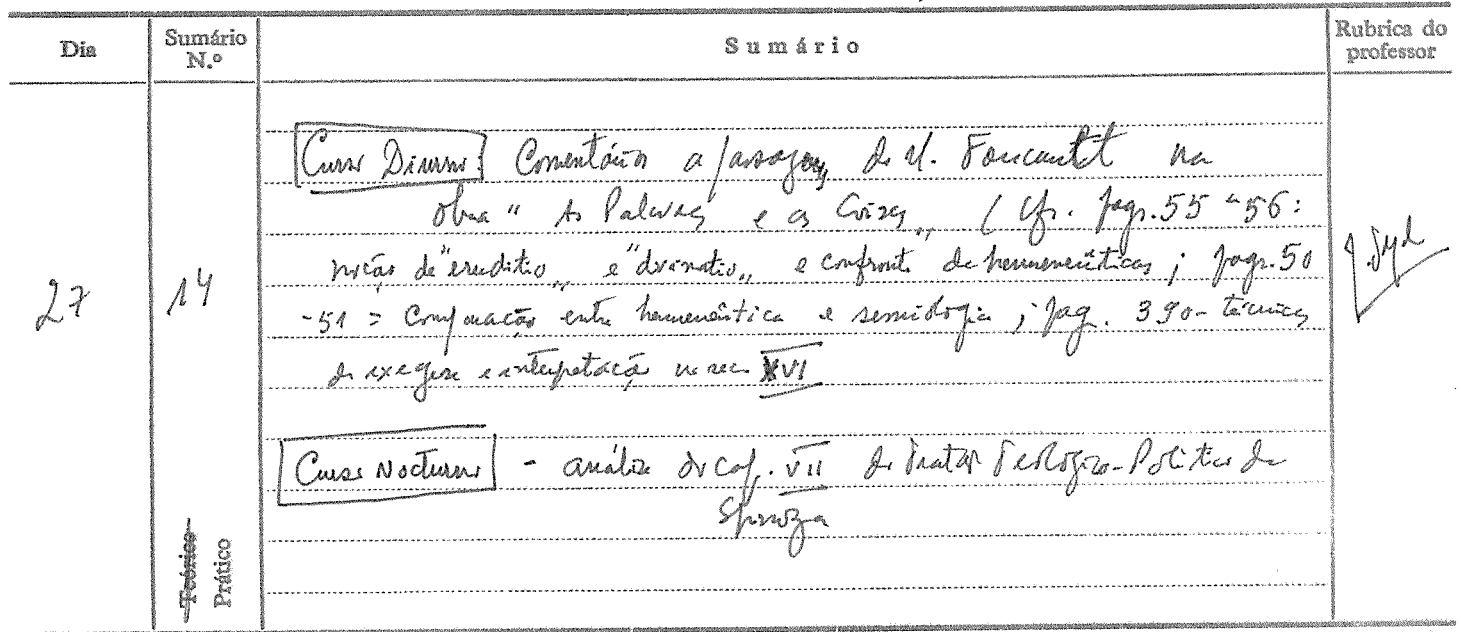 Dia
Sumário N.º
Sumário
Rubrica do professor
27
14
Curso Diurno: Comentário a passagens de M. Foucault na
obra "As Palavras e as Coisas" (Cfr. pags. 55 a 56:
noção de "eruditio" e "divinatio" e confronto de hermenêuticas; pags. 50
-51 = Comparação entre hermenêutica e semiologia; pag. 390 - técnicas
de exegese e interpretação no sec. XVI
Curso Nocturno - análise do cap. VII do Tratado Teológico-Político de
Spinoza
Teórico
Prático